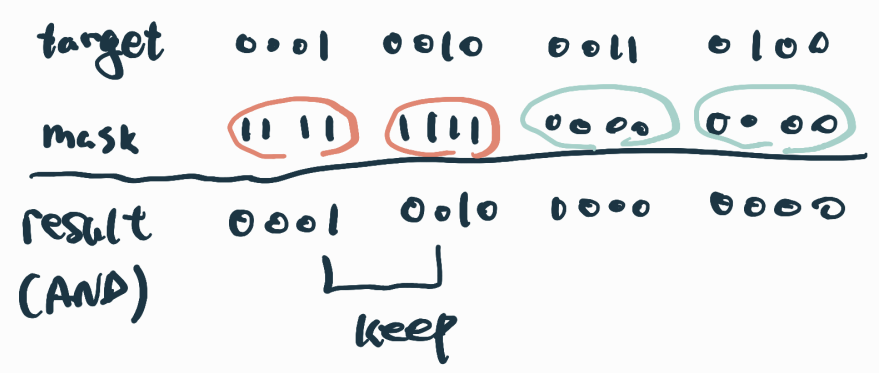 target 0001 0010 0011 0100
mask 1111 1111 0000 0000
result 0001 0010 0000 0000
(AND)
keep